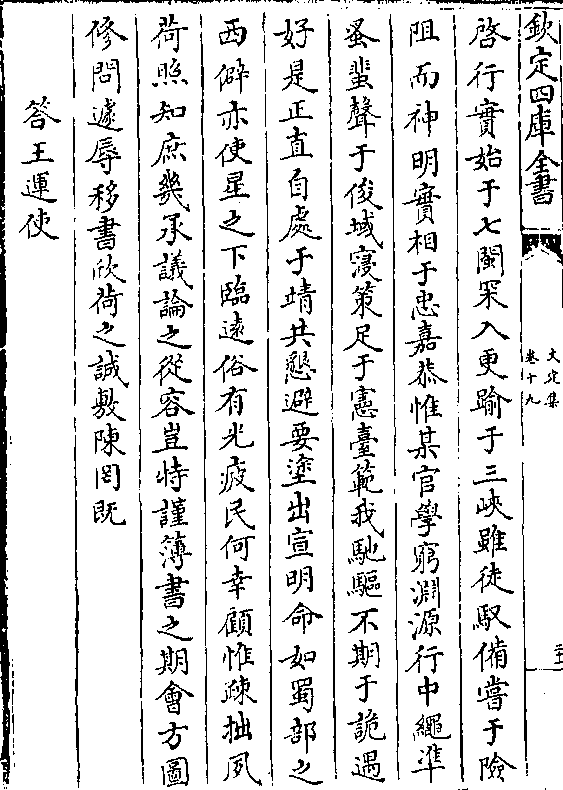 欽定四庫全書
文定集
卷十九
啓行實始于七閩罙入更踰于三峽雖徒馭備嘗于險
阻而神明實相于忠嘉恭惟某官學窮淵源行中繩準
蚤蜚聲于俊域寖策足于憲臺範我馳驅不期于詭遇
好是正直自處于靖共懇避要塗出宣明命如蜀部之
西僻亦使星之下臨遠俗有光疲民何幸顧惟疎拙夙
荷照知庶幾承議論之從容豈特謹簿書之期會方圖
修問遽辱移書欣荷之誠敷陳罔既
答王運使